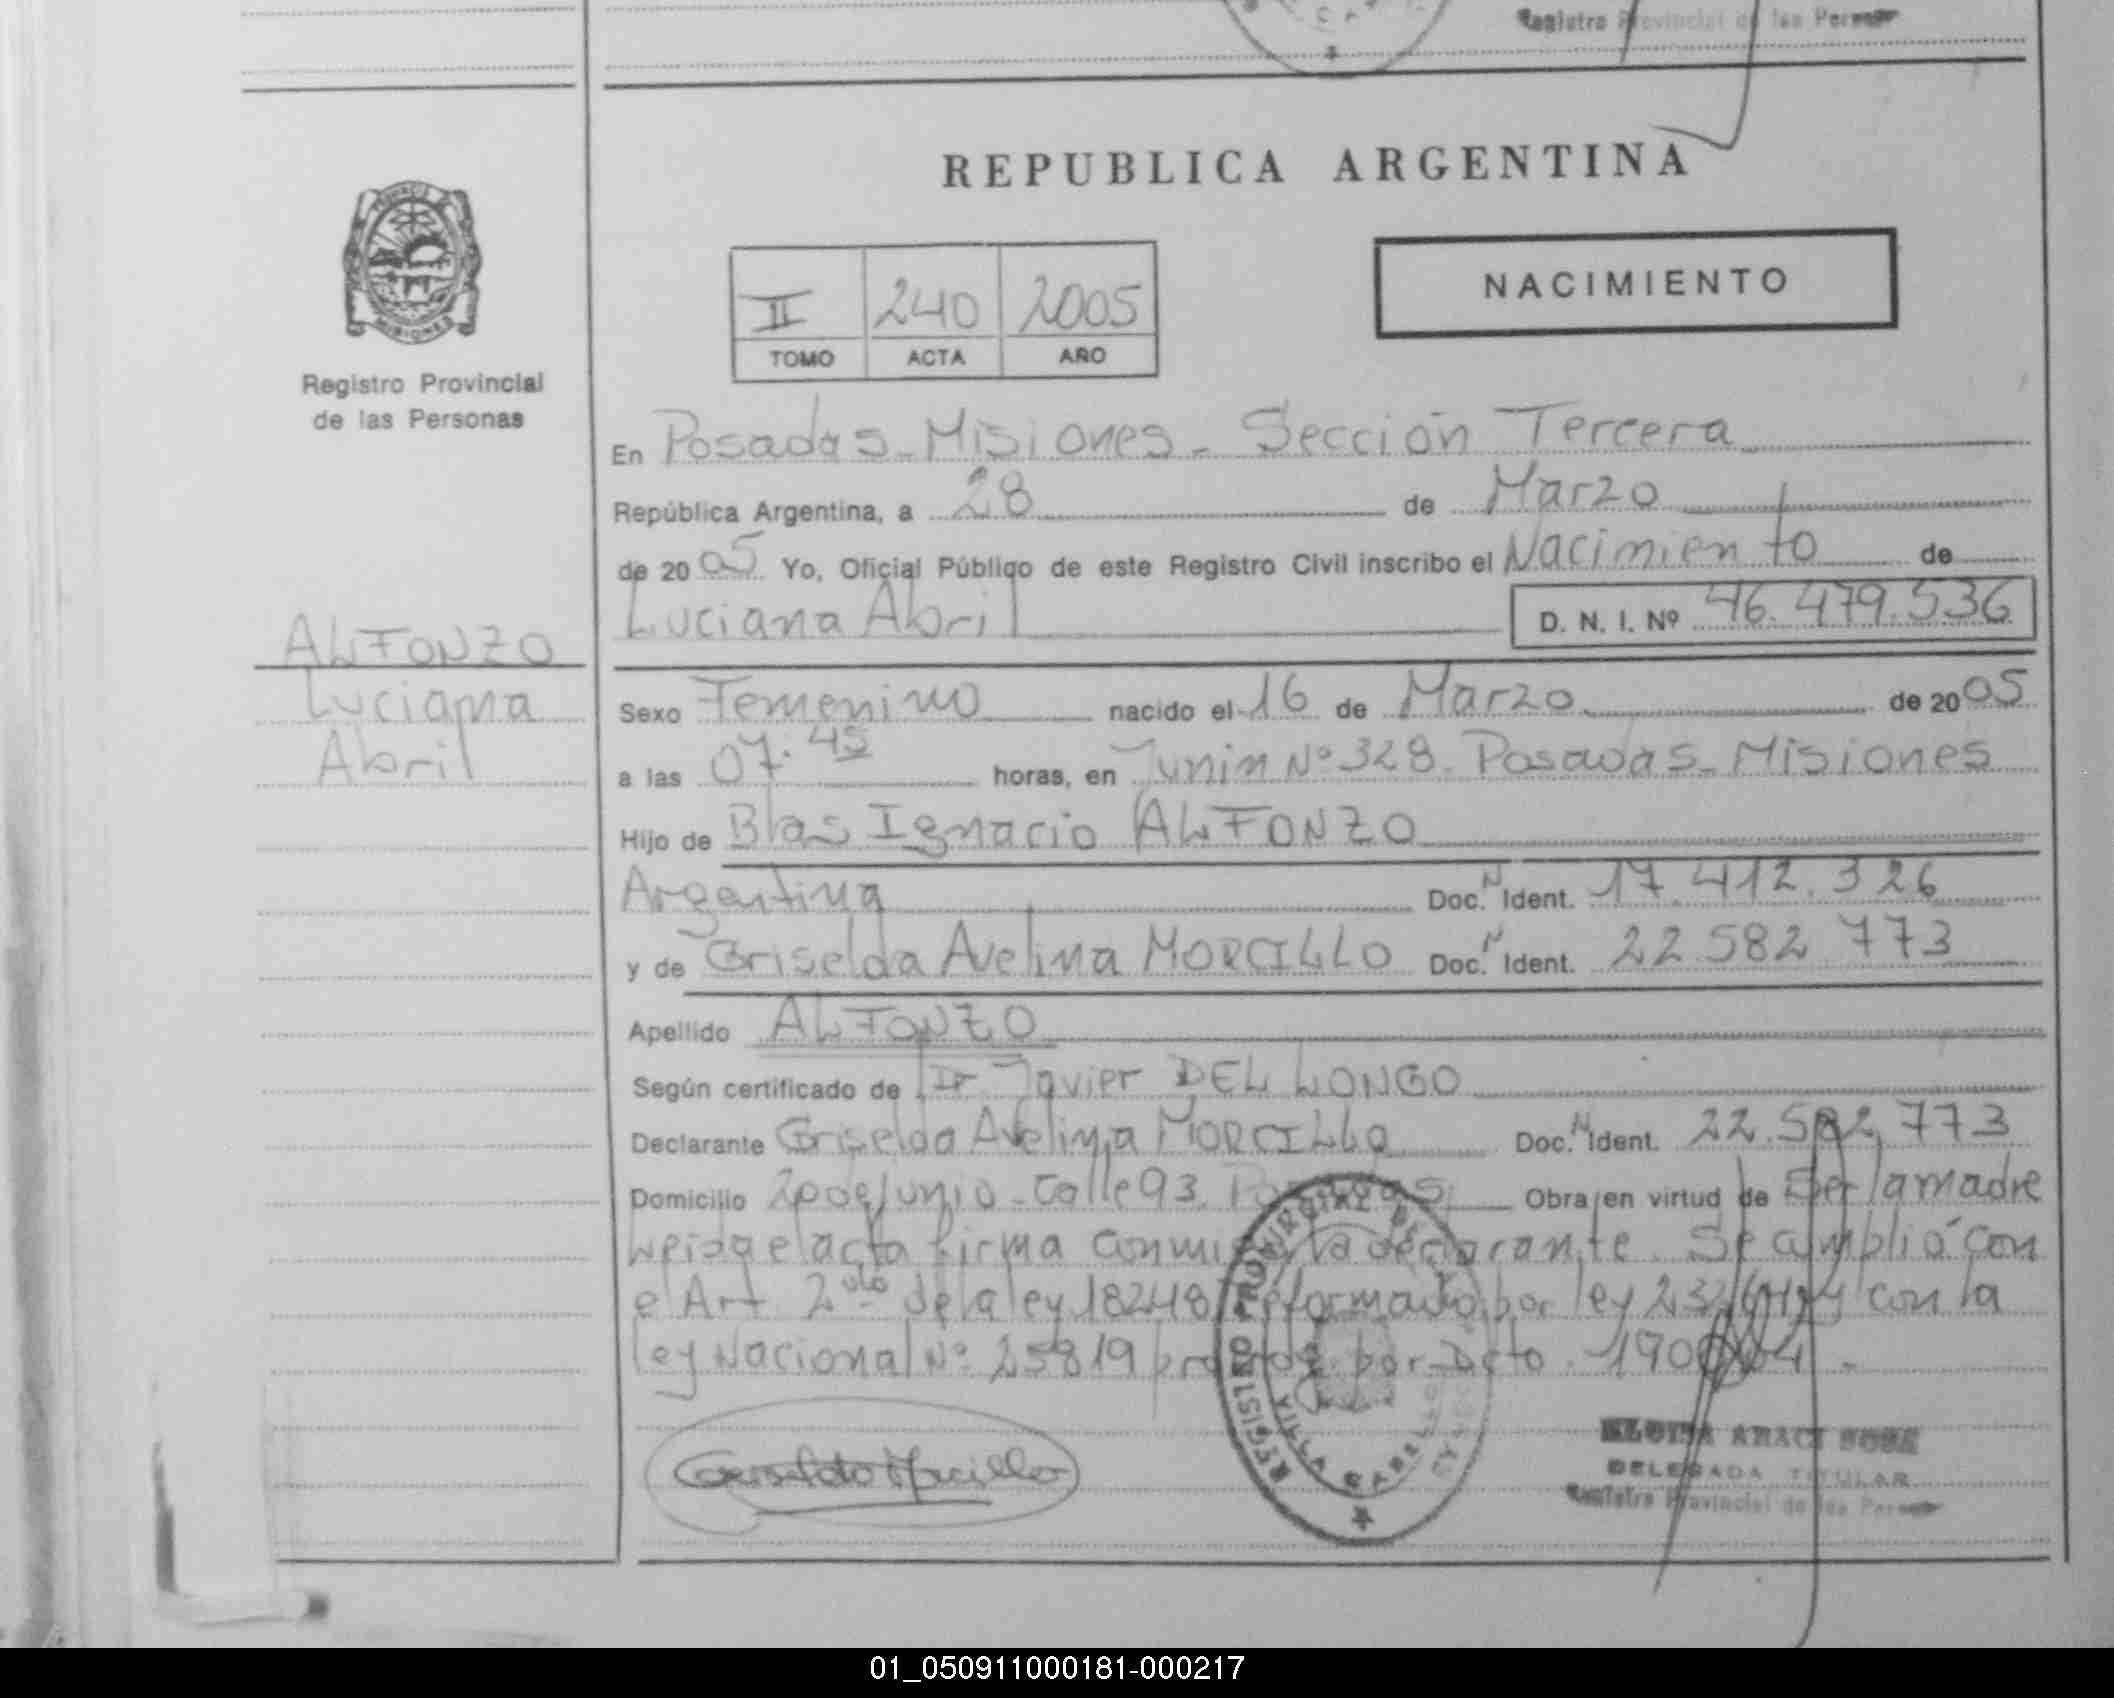 Registro Provincial de las Personas
REPUBLICA ARGENTINA
NACIMIENTO
II 240 2005
TOMO ACTA AÑO
MISIONES
Registro Provincial
de las Personas
En Posadas - Misiones - Sección Tercera
República Argentina, a 28 de Marzo
de 2005 Yo, Oficial Público de este Registro Civil inscribo el Nacimiento de
Luciana Abril D. N. I. Nº 46.479.536
ALFONZO
Luciana
Abril
Sexo Femenino nacido el 16 de Marzo de 2005
a las 07.45 horas, en Junin Nº 328 - Posadas - Misiones
Hijo de Blas Ignacio ALFONZO
Argentina Doc. N Ident. 17.412.326
y de Griselda Avelina MORCILLO Doc. N Ident. 22.582.773
Apellido ALFONZO
Según certificado de Dr. Javier DEL LONGO
Declarante Griselda Avelina MORCILLO Doc. N Ident. 22.582.773
Domicilio 20 de Junio - Calle 93. Posadas Obra en virtud de Ser la madre
Leida el acta firma conmigo la declarante. Se cumplió con
el Art 2do de la ley 18248 reformado por ley 23264 y con la
ley Nacional Nº 25819 por Dcto. 190
Griselda Morcillo
REGISTRO PROVINCIAL DE
VILLA CABELLO
ELOISA ARACI SOSA
DELEGADA TITULAR
Registro Provincial de las Personas
01_050911000181-000217